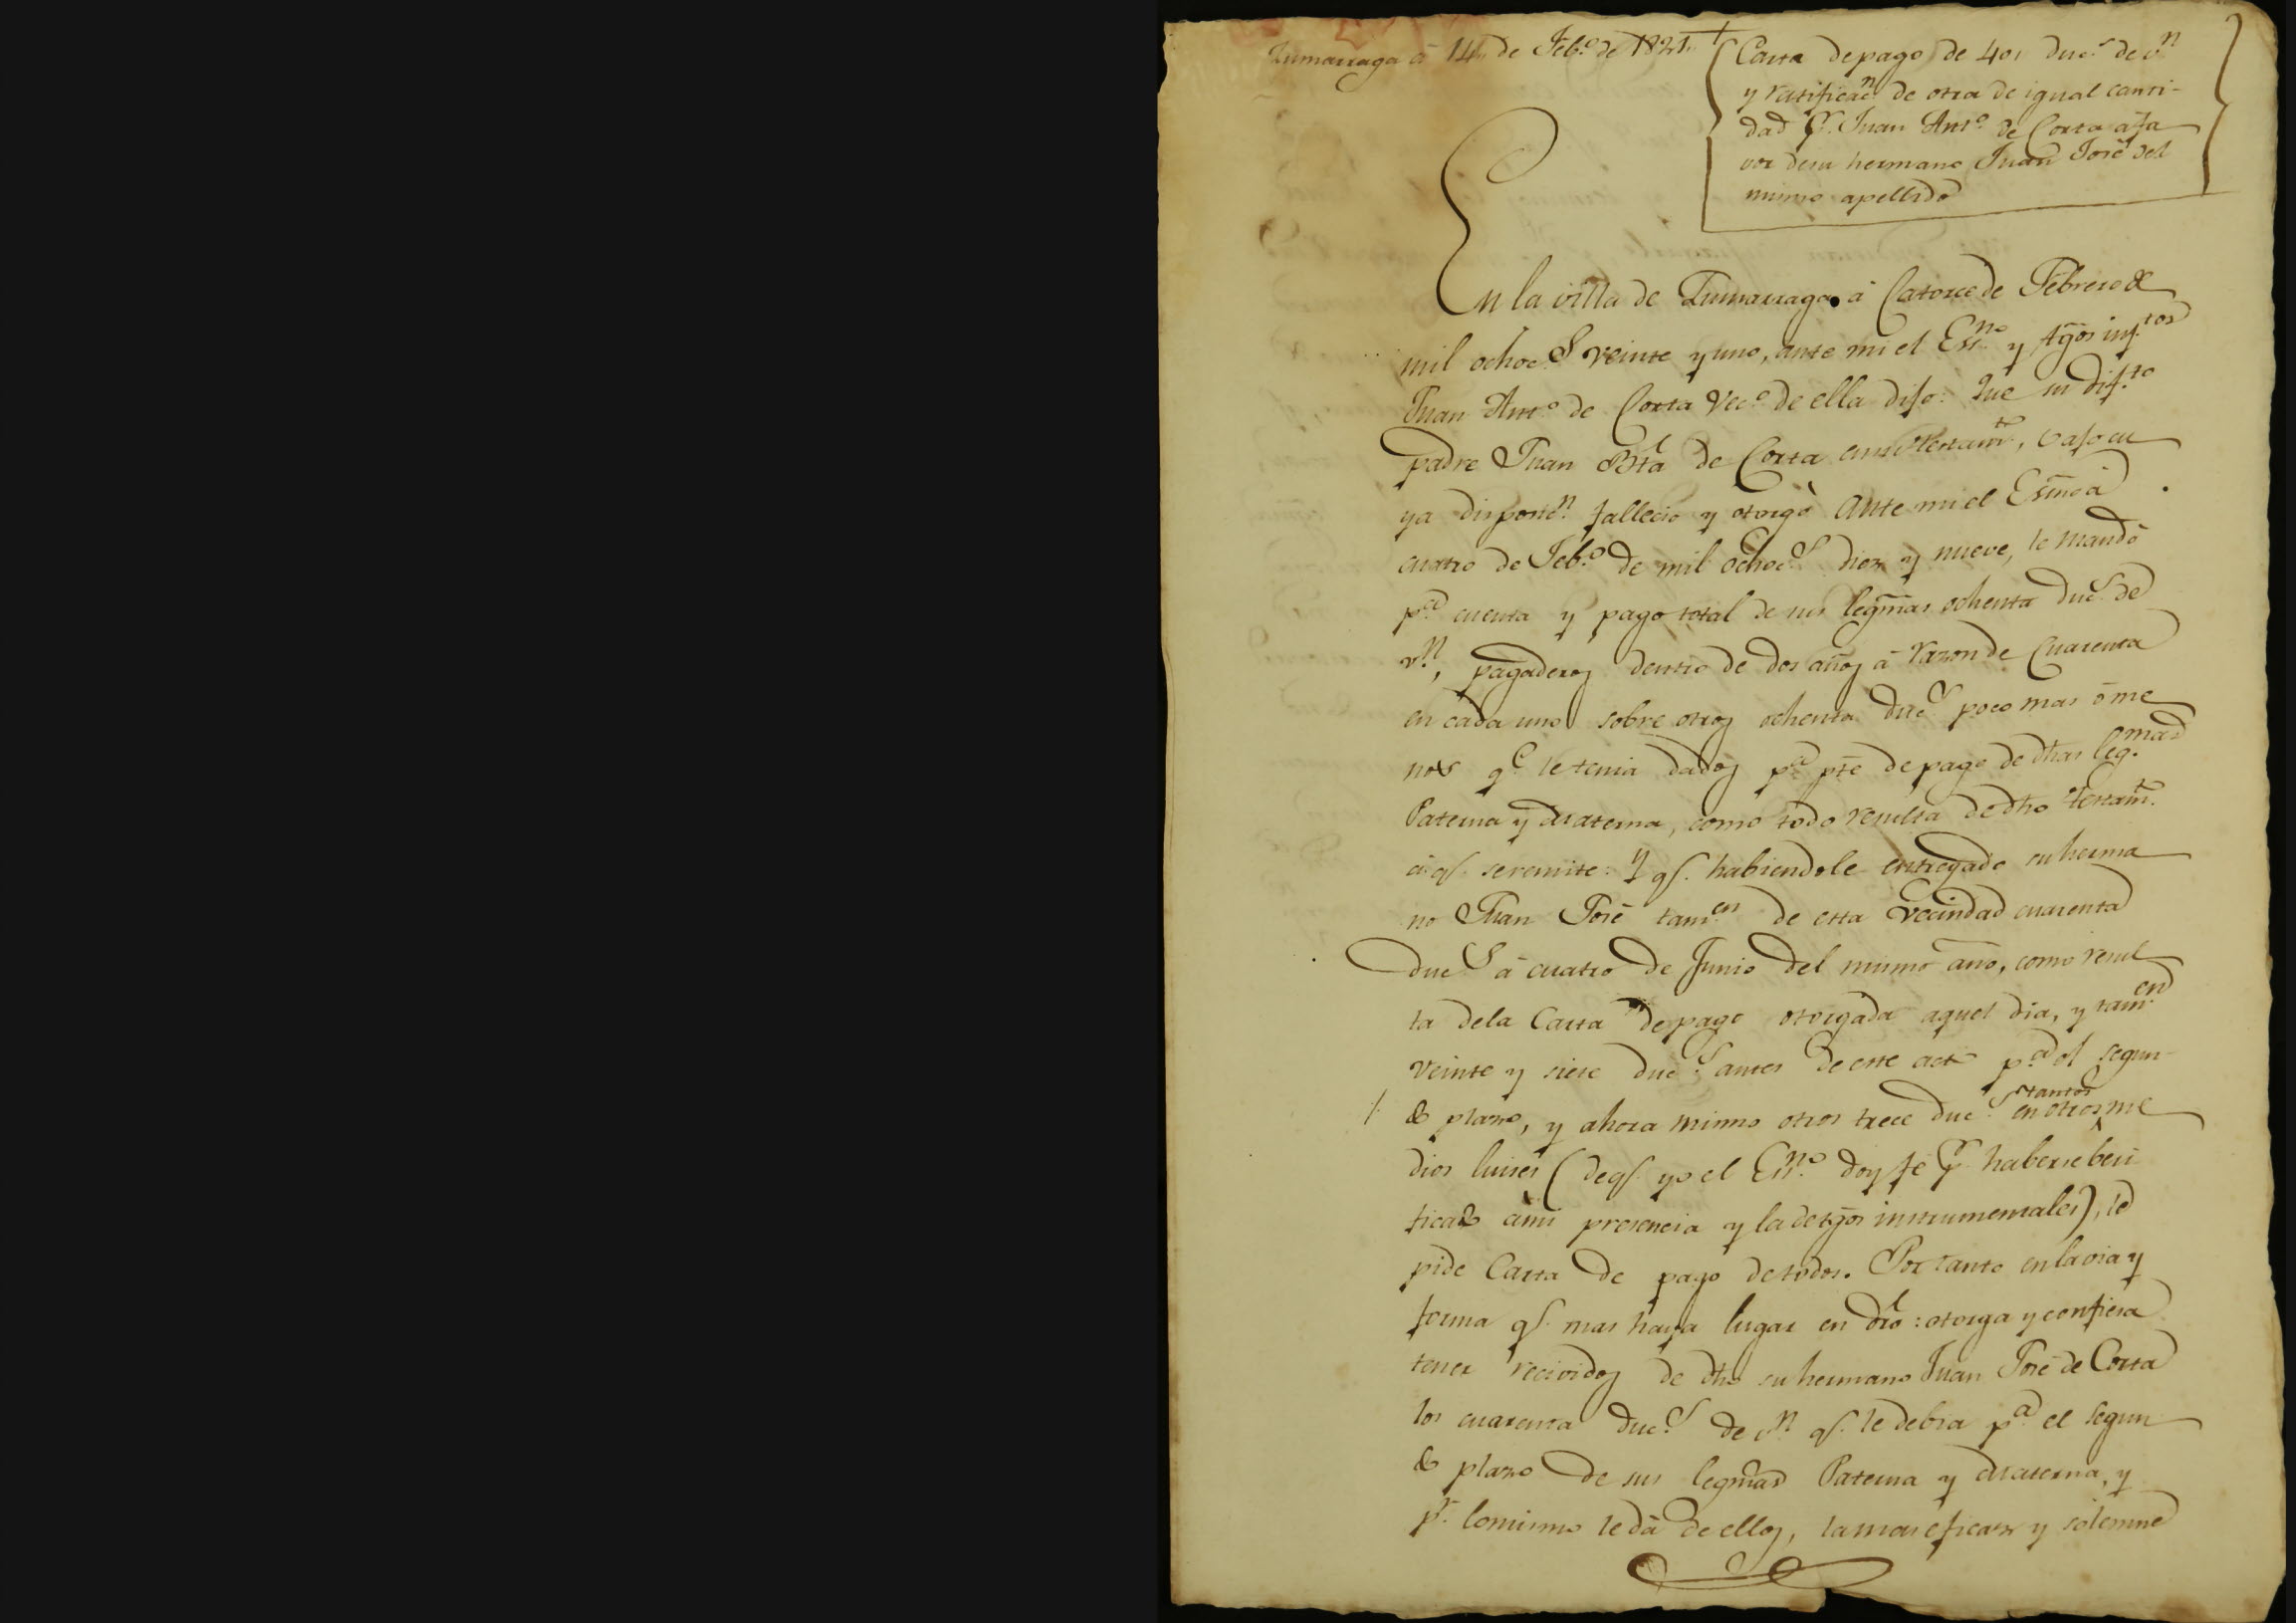 Zumarraga á 14,, de Feb.º de 1821,,
Carta de pago de 40,, duc.s de v.n
y ratificac.n de otra de igual canti-
dad p.r Juan Ant.º de Corta á fa
vor de su hermano Juan José del
mismo apellido
En la villa de Zumarraga á Catorce de Febrero de
mil ochoc.s veinte y uno, ante mi el Ess.no y tg̃os inf.tos
Juan Ant.º de Corta vec.º de ella dijo: Que su dif.to
padre Juan Bta de Corta en su testam.to, bajo cu
ya disposic.n fallecio y otorgò ante mi el Esŝno á
cuatro de Feb.º de mil ochoc.s diez y nueve, le mandó
p.a cuenta y pago total de sus legm̃as ochenta duc.s de
v.n, pagaderos dentro de dos años á razon de Cuarenta
en cada uno sobre otros ochenta duc.s poco mas ó me
nos q.e le tenia dados p.a pte de pago de dhas leg.mas
Paterna y Materna, como todo resulta de dho testam.to
á q.e se remite: Y q.e habiendole entregado su herma
no Juan José tam.en de esta vecindad cuarenta
duc.s á cuatro de Junio del mismo año, como resul
ta dela Carta de pago otorgada aquel dia, y tam.en
veinte y siete duc.s antes de este acto p.a el segun-
do plazo, y ahora mismo otros trece duc.s en otros tantos me
dios luises (de q.e yo el Ess.no doy fe p.r haberse beri
ficado á mi presencia y la de tg̃os instrumentales), le
pide Carta de pago de todos. Por tanto en la via y
forma q.e mas haya lugar en dro: otorga y confiesa
tener recividos de dho su hermano Juan José de Corta
los cuarenta duc.s de v.n q.e le debia p.a el segun
do plazo de sus legmas Paterna y Materna, y
p.r lo mismo le dá de ellos, la mas eficaz y solemne